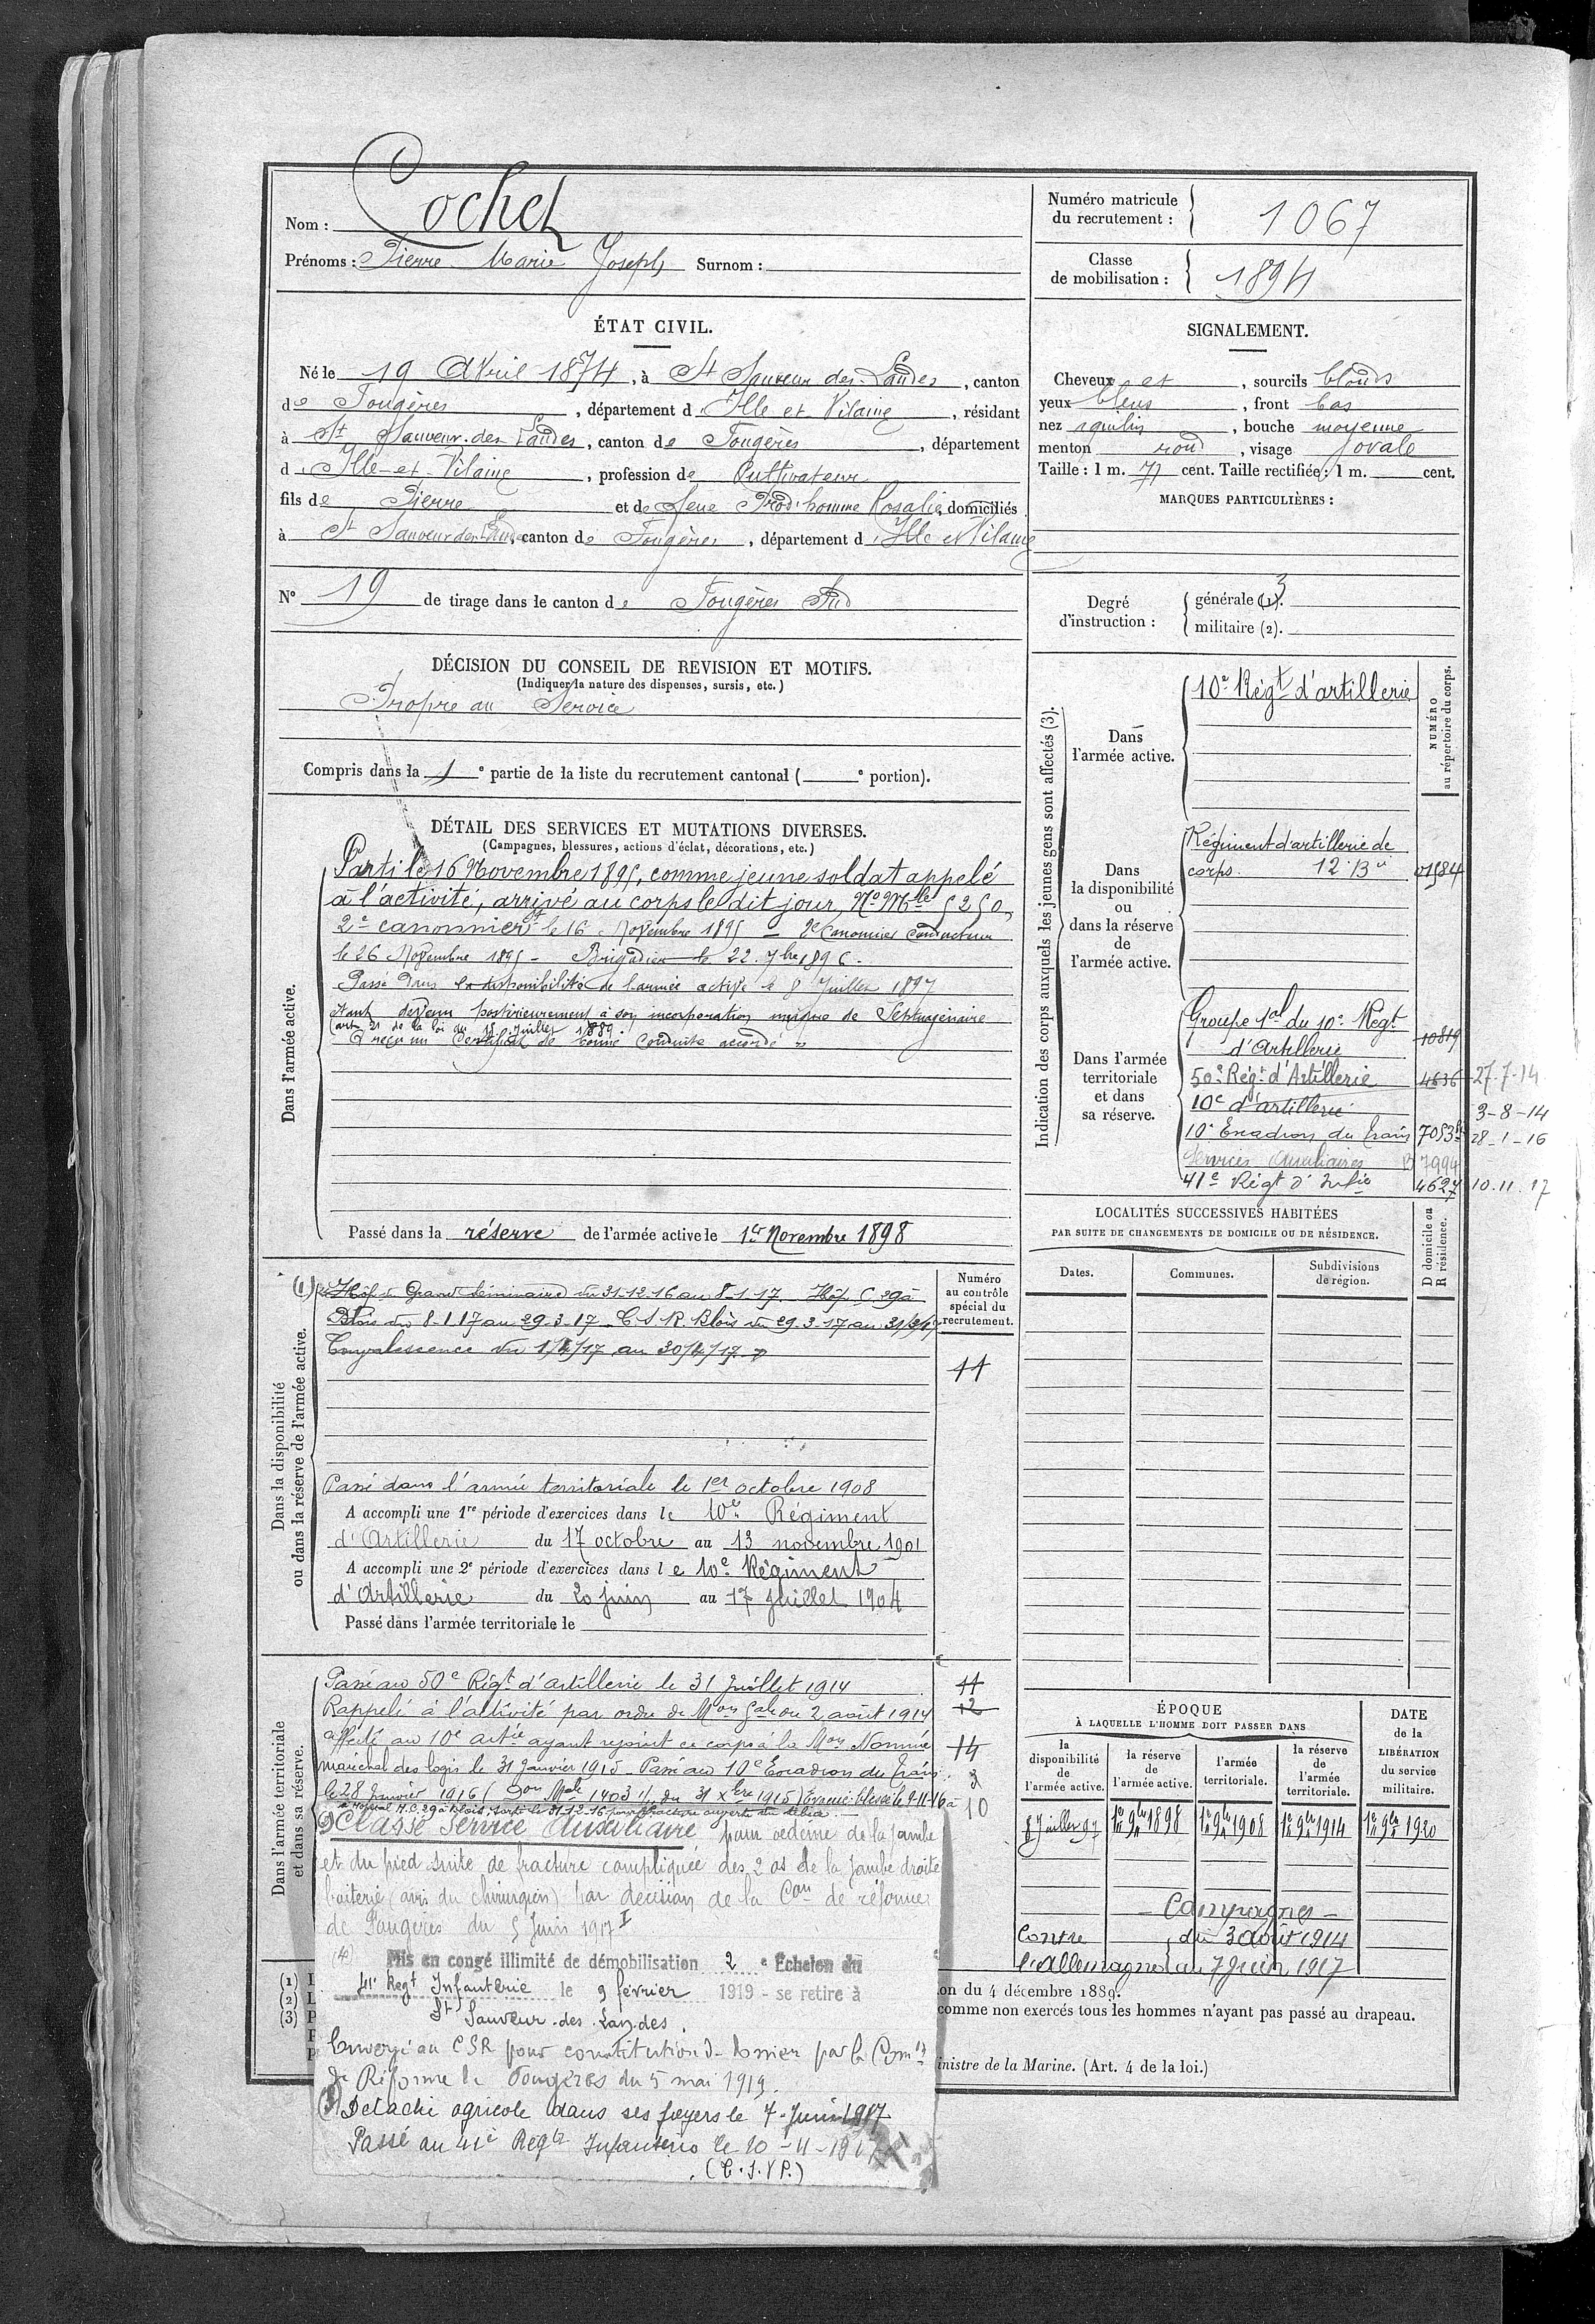 Nom : Cochet
Prénoms : Pierre Marie Joseph Surnom :
Numéro matricule
du recrutement : 1067
Classe
de mobilisation : 1894
ÉTAT CIVIL.
Né le 19 Avril 1874, à St Sauveur des Landes, canton
de Fougères, département d Ille et Vilaine, résidant
à St Sauveur des Landes, canton de Fougères, département
d Ille-et-Vilaine, profession de Cultivateur
fils de Pierre et de feue Prod'homme Rosalie, domiciliés
à St Sauveur des Landes, canton de Fougères, département d Ille et Vilaine
N° 19 de tirage dans le canton de Fougères Sud
SIGNALEMENT.
Cheveux et, sourcils blonds
yeux bleus, front bas
nez aquilin, bouche moyenne
menton rond, visage ovale
Taille : 1 m. 71 cent. Taille rectifiée : 1 m. cent.
MARQUES PARTICULIÈRES :
Degré
d'instruction :
générale (1). 3
militaire (2).
DÉCISION DU CONSEIL DE REVISION ET MOTIFS.
(Indiquer la nature des dispenses, sursis, etc.)
Propre au Service
Compris dans la 1e partie de la liste du recrutement cantonal ( e portion).
DÉTAIL DES SERVICES ET MUTATIONS DIVERSES.
(Campagnes, blessures, actions d'éclat, décorations, etc.)
Dans l'armée active.
Parti le 16 Novembre 1895, comme jeune soldat appelé
à l'activité, arrivé au corps le dit jour, No Mle 5250,
2e canonnier st le 16 Novembre 1895 – 2e Canonnier Conducteur
le 26 Novembre 1895 – Brigadier le 22 7bre 1896.
Passé dans la disponibilité de l'armée active le 8 Juillet 1897
étant devenu postérieurement à son incorporation unique de Septuagénaire
(art. 21 de la loi du 15 Juillet 1889.
A reçu un Certificat de bonne Conduite accordé »
Passé dans la réserve de l'armée active le 1er Novembre 1898
Indication des corps auxquels les jeunes gens sont affectés (3).
NUMÉRO
au répertoire du corps.
Dans
l'armée active.
10e Régt d'artillerie
Dans
la disponibilité
ou
dans la réserve
de
l'armée active.
Régiment d'artillerie de
corps. 12e Bie 01584
Dans l'armée
territoriale
et dans
sa réserve.
Groupe tal du 10e Régt
d'Artillerie 10819
50e Régt d'Artillerie 4636 27-7-14
10e d'artillerie 3-8-14
10e Escadron du train 7053 28-1-16
Services Auxiliaires 7994
41e Régt d'Infie 4627 10.11.17
Dans la disponibilité
ou dans la réserve de l'armée active.
Numéro
au contrôle
spécial du
recrutement.
11
(1) Hôp. Grand Séminaire du 31-12-16 au 8-1-17. Hôp. C 29 à
Blois du 8-1-17 au 29-3-17 C.S.R. Blois du 29-3-17 au 31/3/17
Convalescence du 1/4/17 au 30/4/17
Passé dans l'armée territoriale le 1er octobre 1908
A accompli une 1re période d'exercices dans le 10e Régiment
d'Artillerie du 17 octobre au 13 novembre 1901
A accompli une 2e période d'exercices dans le 10e Régiment
d'Artillerie du 20 juin au 17 juillet 1904
Passé dans l'armée territoriale le
LOCALITÉS SUCCESSIVES HABITÉES
PAR SUITE DE CHANGEMENTS DE DOMICILE OU DE RÉSIDENCE.
Dates.
Communes.
Subdivisions
de région.
D domicile ou
R résidence.
Dans l'armée territoriale
et dans sa réserve.
Passé au 50e Régt d'artillerie le 31 Juillet 1914 11
Rappelé à l'activité par ordre de Mon Gale du 2 août 1914 12
affecté au 10e artie ayant rejoint ce corps à la Mon Nommé 14
maréchal des logis le 31 Janvier 1915 – Passé au 10e Escadron du train 3
le 28 Janvier 1916 (Don Mle 14031 du 31 Xbre 1915) Evacué blessé le 9-11-16 à 10
Hôpital H.C. 29 à Blois, sorti le 31-12-16 pour fracture ouverte du tibia
Classé Service Auxiliaire pour oedème de la jambe
et du pied suite de fracture compliquée des 2 os de la jambe droite
boiterie (avis du chirurgien) par décision de la Con de réforme
de Fougères du 5 Juin 1917
(4) Mis en congé illimité de démobilisation 2e Echelon du
41e Regt Infanterie le 9 février 1919 - se retire à
St Sauveur-des-Landes.
Envoyé au CSR pour constitution de dossier par la Comon
de Réforme de Fougères du 5 mai 1919.
(3) Détaché agricole dans ses foyers le 7 Juin 1917
Passé au 41e Regt Infanterie le 10-11-1917
ÉPOQUE
À LAQUELLE L'HOMME DOIT PASSER DANS
la
disponibilité
de
l'armée active.
la réserve
de
l'armée active.
l'armée
territoriale.
la réserve
de
l'armée
territoriale.
DATE
de la
LIBÉRATION
du service
militaire.
8 Juillet 97
1er 9bre 1898
1er 9bre 1908
1er 9bre 1914
1er 9bre 1920
– Campagnes –
Contre du 3 août 1914
l'Allemagne au 7 Juin 1917
(1)
(2)
(3)
on du 4 décembre 1889.
comme non exercés tous les hommes n'ayant pas passé au drapeau.
inistre de la Marine. (Art. 4 de la loi.)